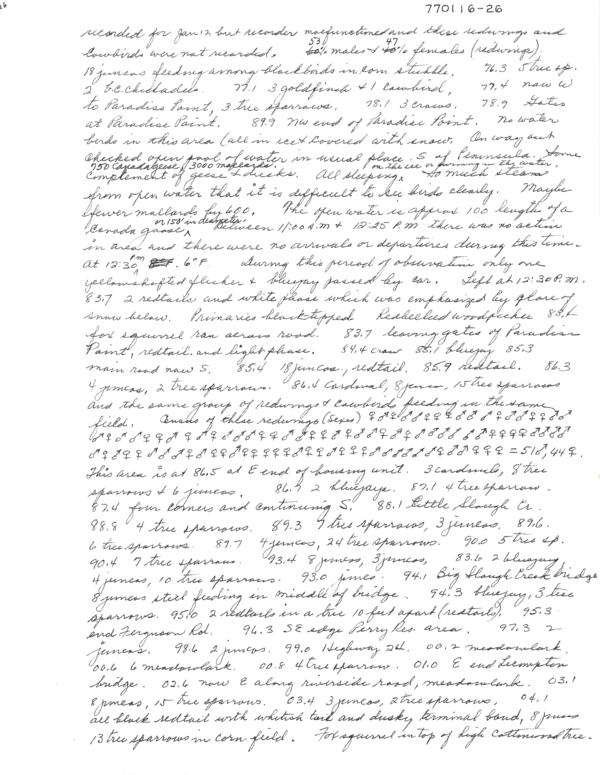 26
770116-26
recorded for Jan 12 but recorder malfunctioned and these redwings and
Cowbirds were not recorded. 53 60% males & 47 40% females (redwings).
18 juncos feeding among blackbirds in corn stubble. 76.3 5 tree sp.
2 B.C. Chickadees. 77.1 3 goldfinch & 1 cowbird, 77.4 now W
to Paradise Point, 3 tree sparrows. 78.1 3 crows. 78.9 Gates
at Paradise Point. 89.9 NW end of Paradise Point. No water
birds in this area (all in ice & covered with snow. On way out
checked open pool of water in usual place S. of Peninsula. Some
750 Canada geese & 3000 mallards. on the ice or swimming in the water.
Complement of geese & ducks. All sleeping. So much steam
from open water that it is difficult to see birds clearly. Maybe
fewer mallards by 600. The open water is approx 100 length of a
Canada goose or 150' in diameter. Between 11:00 A.M & 12:25 P.M there was no action
in area and there were no arrivals or departures during this time.
At 12:30 PM 6°F During this period of observation only one
yellowshafted flicker & bluejay passed by car. Left at 12:30 P.M.
83.7 2 redtails and white phase which was emphasized by glare of
snow below. Primaries black tipped Redbellied woodpecker 83.4
fox squirrel ran across road. 83.7 leaving gates of Paradise
Point, redtail and light phase. 84.4 crow 85.1 bluejay 85.3
main road now S. 85.4 18 juncos, redtail. 85.9 redtail. 86.3
4 juncos, 2 tree sparrows. 86.4 Cardinal, 8 junco, 15 tree sparrows
and the same group of redwings & cowbirds feeding in the same
field. Census of these redwings (Sexes)
= 51♂, 44♀.
This area is at 86.5 at E end of housing unit. 3 cardinals, 8 tree
sparrows & 6 juncos. 86.7 2 bluejays. 87.1 4 tree sparrow.
87.4 four corners and continuing S. 88.1 Little Slough Cr.
88.8 4 tree sparrows. 89.3 7 tree sparrows, 3 juncos. 89.6.
6 tree sparrows. 89.7 4 juncos, 24 tree sparrows. 90.0 5 tree sp.
90.4 7 tree sparrows. 93.4 8 juncos, 3 juncos, 83.6 2 bluejay
4 juncos, 10 tree sparrows. 93.0 junco. 94.1 Big Slough Creek bridge
8 juncos still feeding in middle of bridge. 94.3 bluejay, 3 tree
sparrows. 95.0 2 redtails in a tree 10 feet apart (redtails). 95.3
end Ferguson Rd. 96.3 SE edge Perry Res. area. 97.3 2
juncos. 98.6 2 juncos. 99.0 Highway 24. 00.2 meadowlark.
00.6 6 meadowlark. 00.8 4 tree sparrow. 01.0 E end Lecompton
bridge. 02.6 now E along riverside road, meadowlark. 03.1
8 juncos, 15 tree sparrows. 03.4 3 juncos, 2 tree sparrows, 04.1
all black redtail with whitish tail and dusky terminal band, 8 juncos
13 tree sparrows in corn field. Fox squirrel in top of high Cottonwood tree.